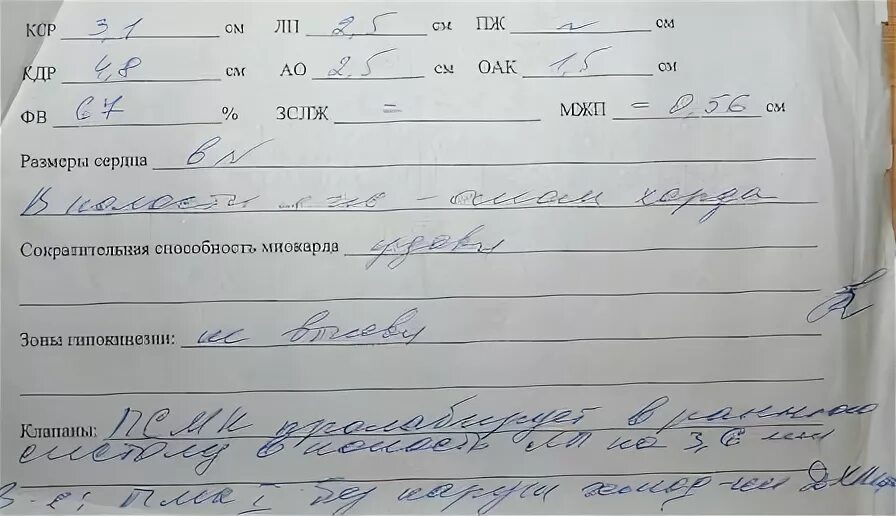 КСР 3,1 см ЛП 2,5 см ПЖ N см
КДР 4,8 см АО 2,5 см ОАК 1,5 см
ФВ 67 % ЗСЛЖ = МЖП = 0,56 см
Размеры сердца в N
В полости лж - аном хорда
Сократительная способность миокарда удовл
Зоны гипокинезии: не выявл
Клапаны: ПСМК пролабирует в раннюю
систолу в полость ЛП на 3,6 мм
З-е: ПМК I без наруш